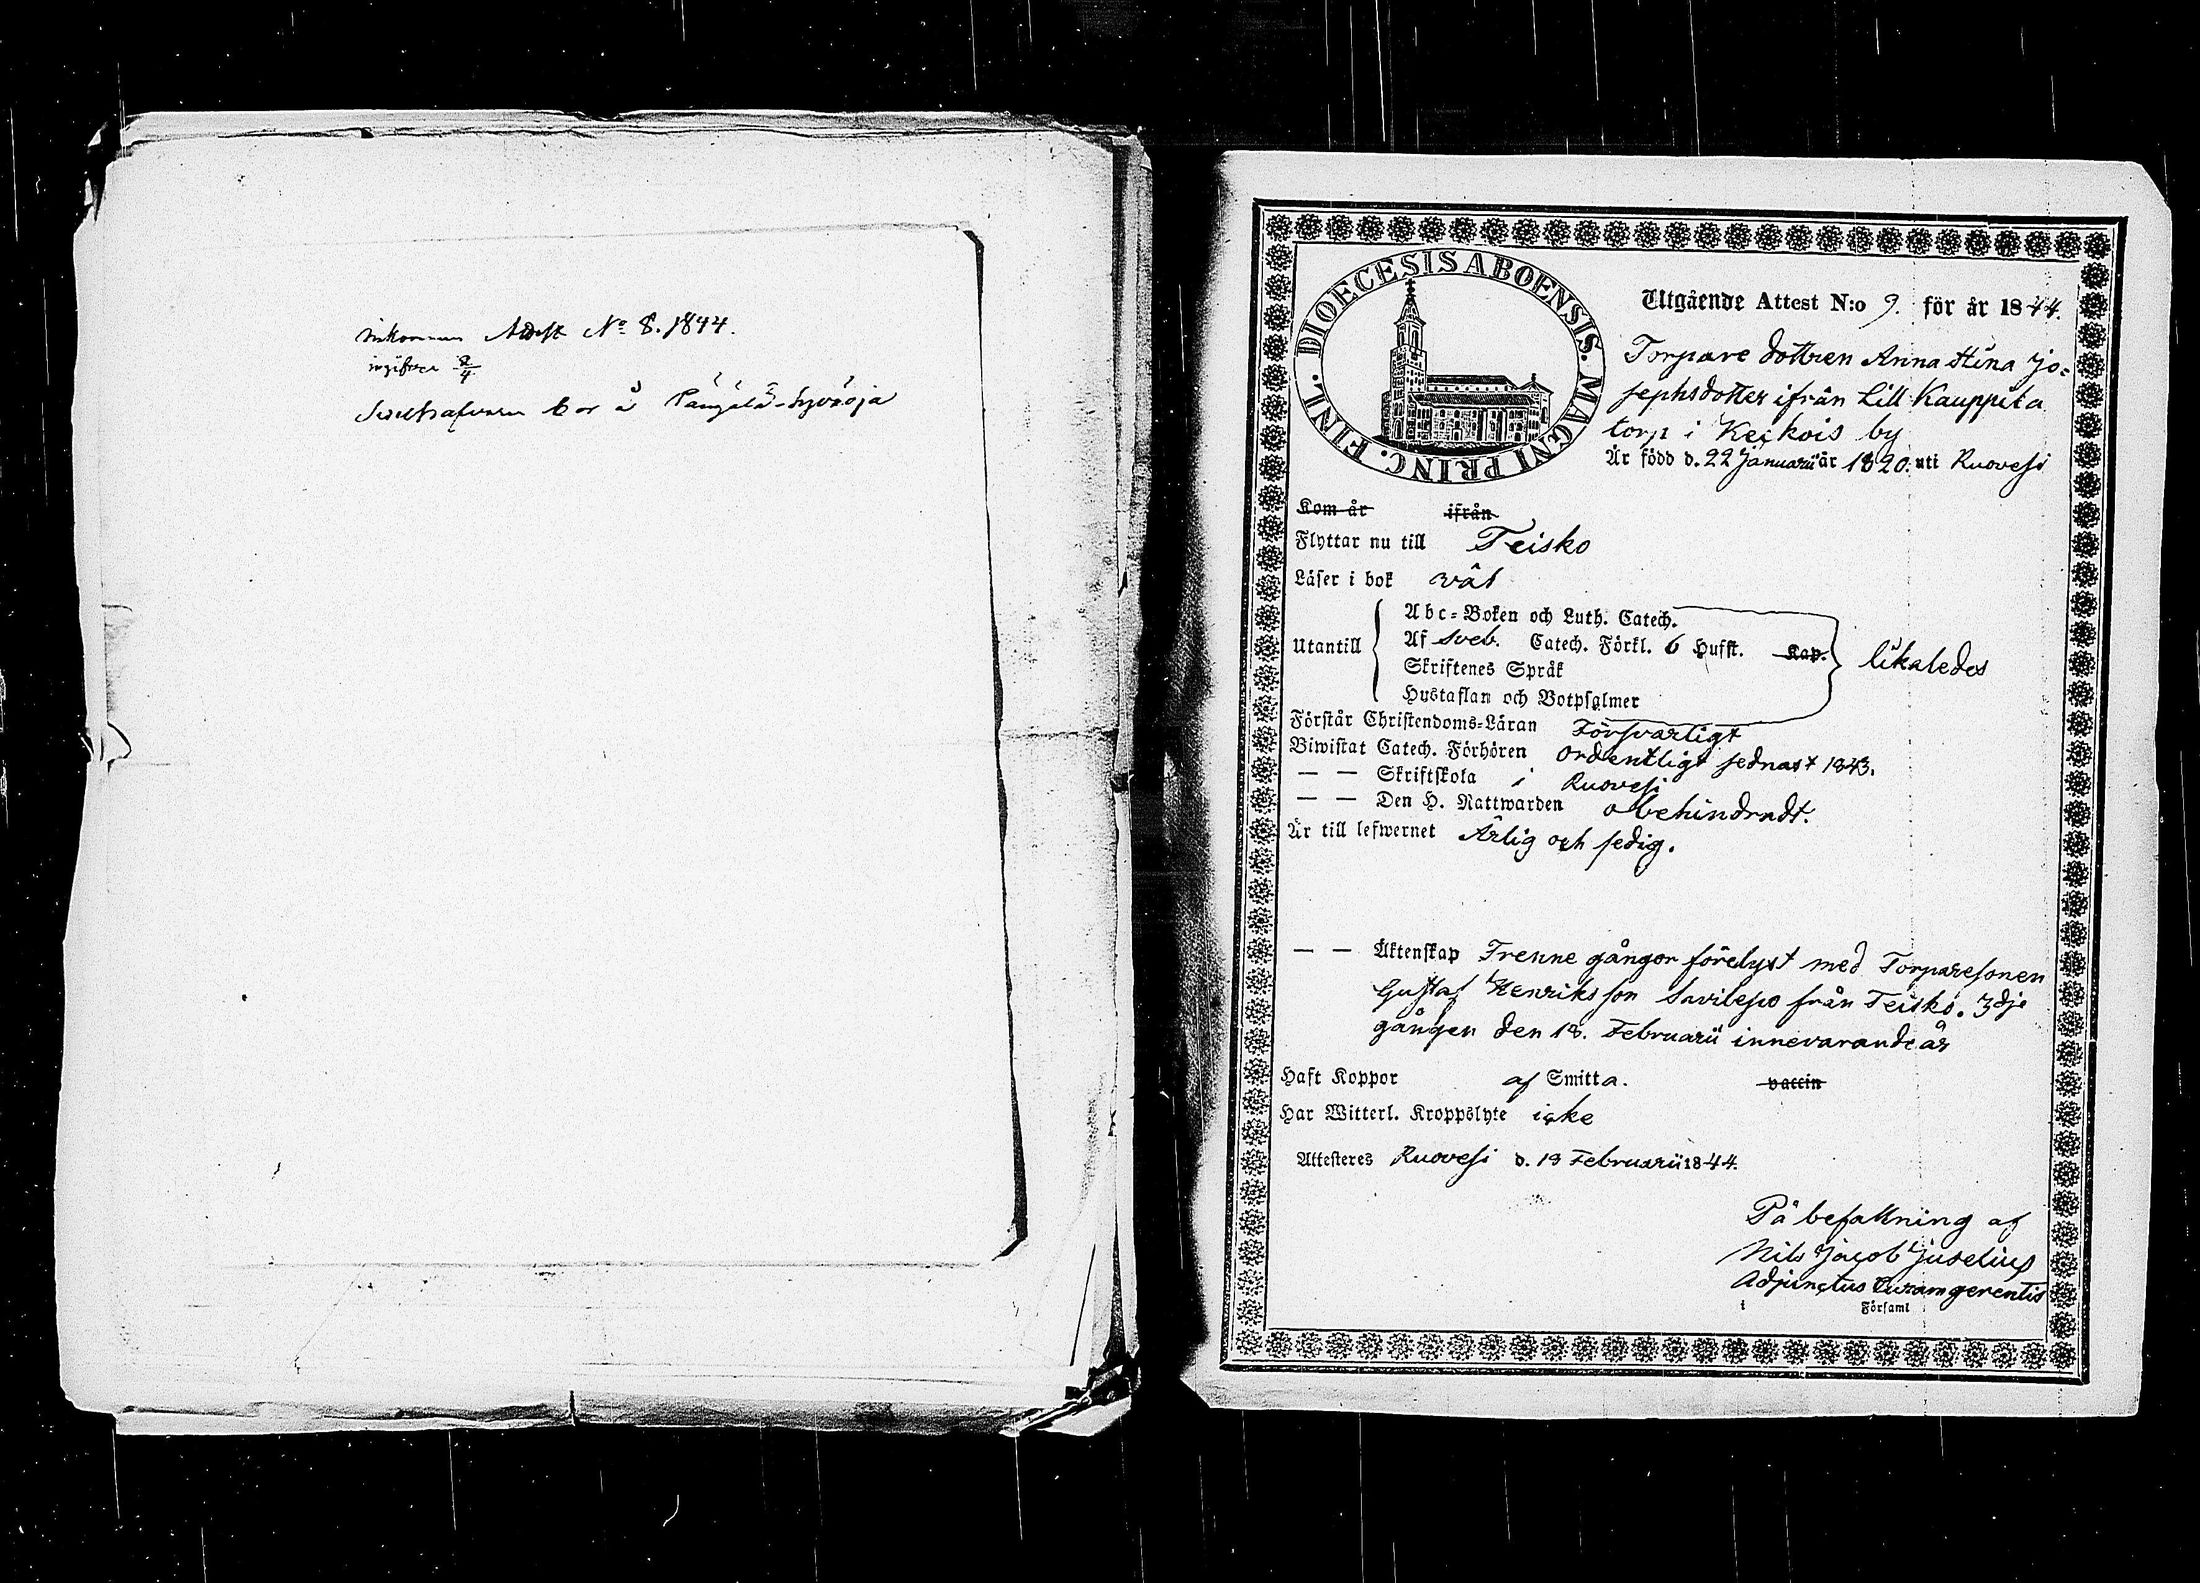 Inkommen Attest No 8. 1844.
ingifven 2/4
bor å
DIOECESIS ABOENSIS. MAGNI PRINC. FINL.
Utgående Attest N:o 9. för år 1844.
Torpare dottren Anna Stina Jo-
sephsdotter ifrån Lill Kauppila
torp i Keikois by
Är född d. 22 Januarii år 1820. uti Ruovesi
Kom år ifrån
Flyttar nu till Teisko
Läser i bok wäl
Utantill
Abc-Boken och Luth. Catech.
Af Sveb. Catech. Förkl. 6 Hufst. Kap.
likaledes
Skriftenes Språk
Hustaflan och Botpsalmer
Förstår Christendoms-Läran Försvarligt
Biwistat Catech. Förhören ordentligt sednast 1843.
— — Skriftskola i Ruovesi
— — Den H. Nattwarden obehindradt.
Är till lefwernet Ärlig och sedig.
— — Äktenskap Trenne gångor förelyst med Torparesonen
Gustaf Henriksson Savilepo från Teisko. 3dje
gången den 18. Februarii innevarande år
Haft Koppor af Smitta. vaccin
Har Witterl. Kroppslyte icke
Attesteres Ruovesi d. 18 Februarii 1844.
På befallning af
Nils Jacob Juselius
Adjunctus Curamgerentis
i Församl